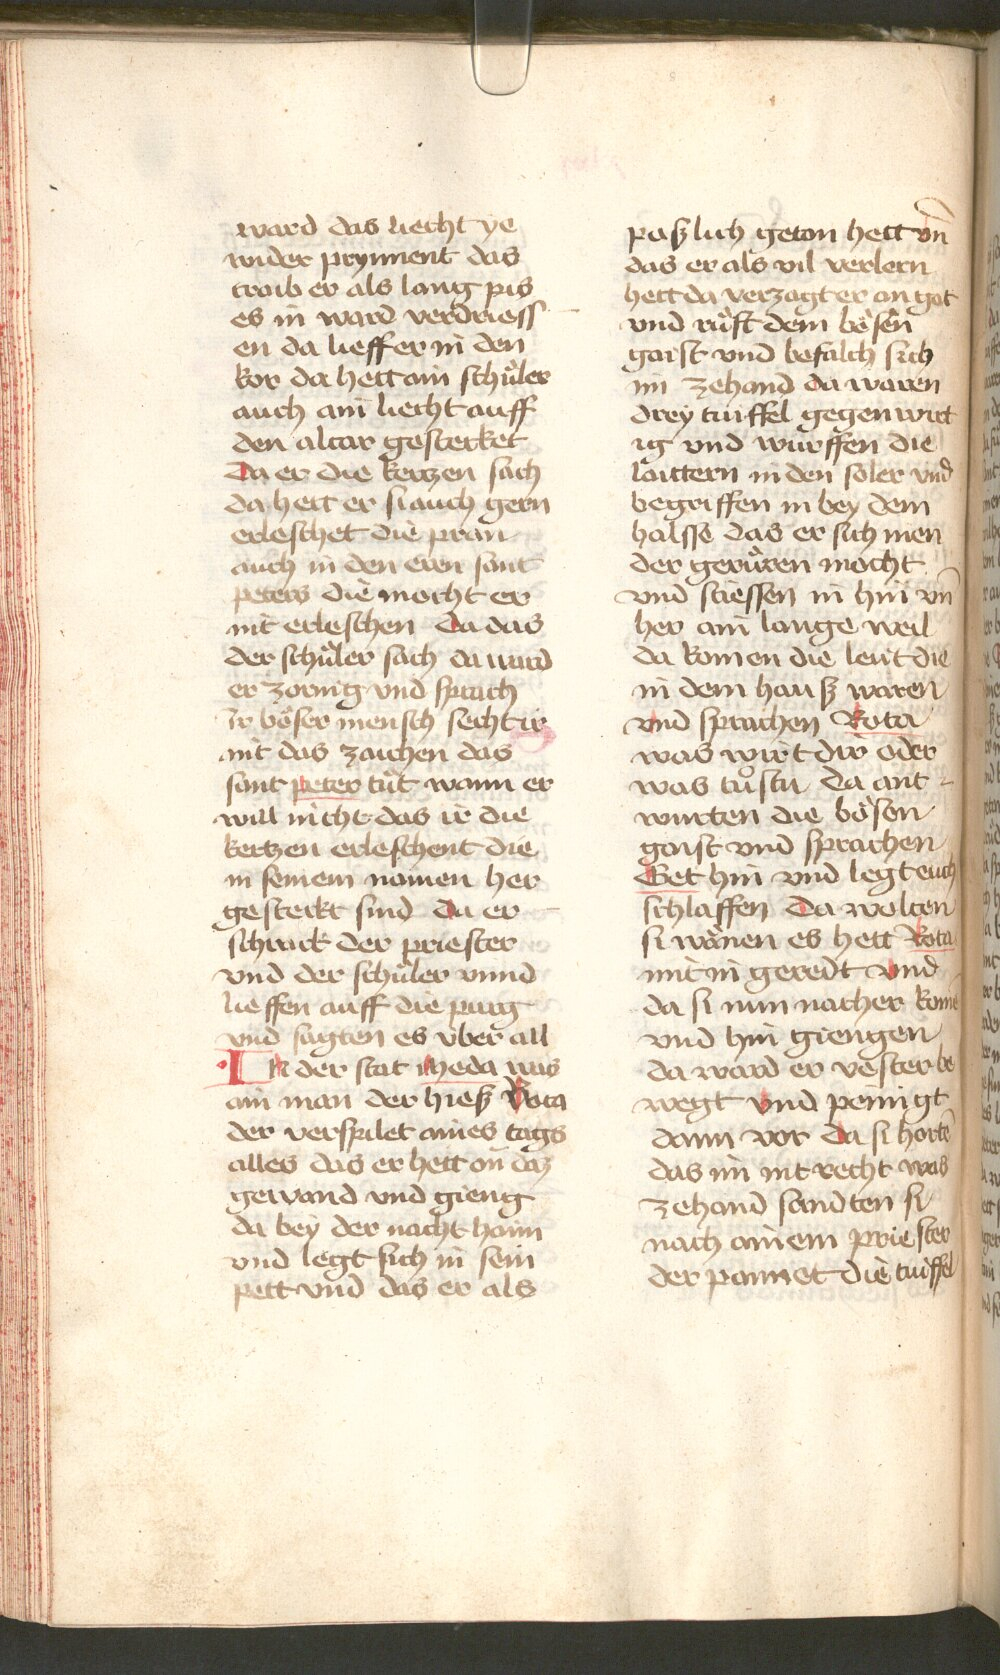 ward das liecht ye
wider prynnent das
traib er als lang pis
es in ward verdriess
en da lieff er in den
kor da hett ain schůler
auch ain liecht auff
den altar gestecket
Da er die kertzen sach
da hett er si auch gern
erleschet die pran
auch in den eren sant
peters die mocht er
nit erleschen Da das
der schůler sach da ward
er zornig vnd sprach
Ir böser mensch secht ir
nit das zaichen das
sant peter tůt wann er
will nicht das ir die
kertzen erleschent die
in seinem namen her
gesteckt sind da er
schrack der priester
vnd der schůler vnnd
lieffen auff die purg
vnd sagten es vber all
In der stat theda was
ain man der hiesz Rota
der verspilet aines tags
alles das er hett on daz
gewand vnd gieng
da bey der nacht haim
vnd legt sich in sein
pett vnd das er als
paszlich geton hett vn̄
das er als vil verlorn
hett da verzagt er an got
vnd růft dem bösen
gaist vnd befalch sich
im zehand da waren
drey tuiffel gegenwirt
ig vnd wurffen die
laittern in den soler vnd
begriffen in bey dem
halsse das er sich nien
der gerůren mocht
vnd stiessen in hin vn̄
her ain lange weil
da komen die leut die
in dem hausz waren
vnd sprachen Rota
was wirt dir oder
was tůstu da ant
wurten die bösen
gaist vnd sprachen
Get hin vnd legt euch
schlaffen Da wolten
si wänen es hett Rota
mit in geredt vnd
da si nun nacher kome̅
vnd hin giengen
da ward er vester be
wegt vnd peinigt
dann vor da si horte̅
das im nit recht was
zehand sandten si
nach ainem priester
der pannet die tuiffel